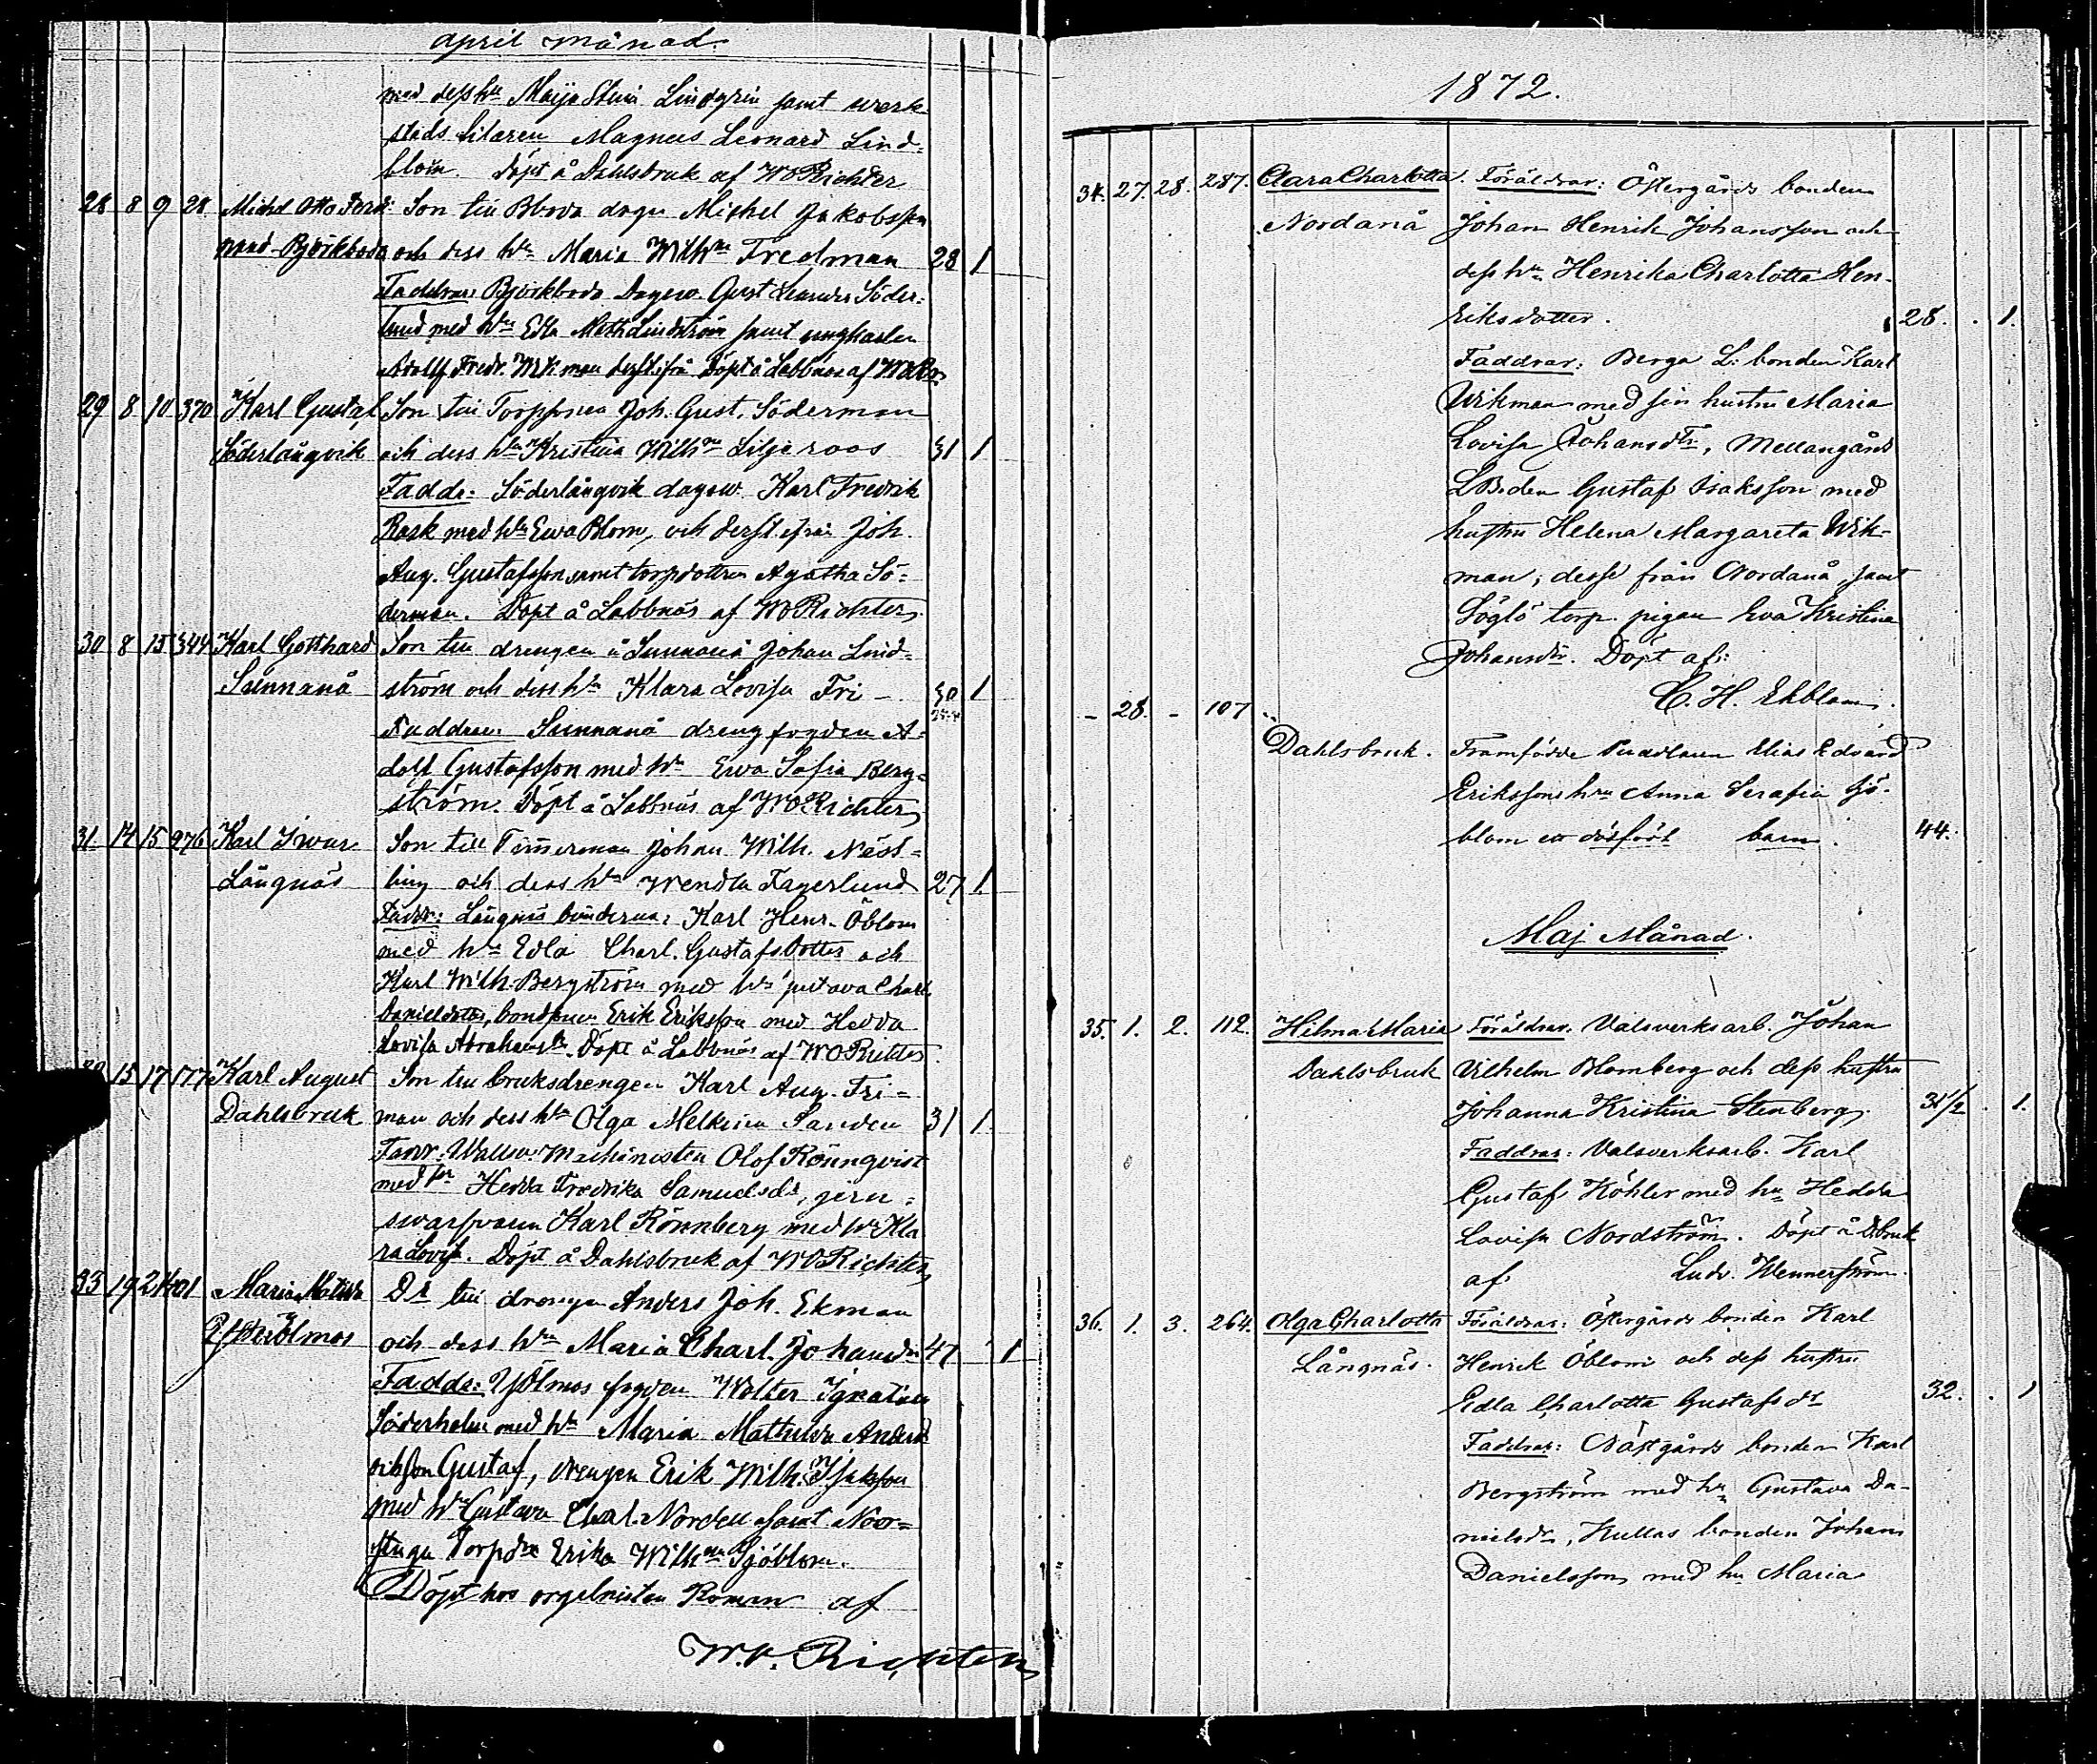 april månad.
med dess hu Maija Stina Lindgrén samt werk-
städs filaren Magnus Leonard Lind-
blom. Döpt å Dahlsbruk af WORichter
28 8 9 28 Michel Otto Ferdi- Son till Bboda dagsv Mickel Jakobsson
nand Björkboda och dess hu Maria Wilhna Fredman 28 1
Faddrar: Björkboda Dagsw. Gust Leander Söder-
lund med hu Edla Math Lindström samt ynglingen
Adolf Fredr. Wikman derstäd. Döpt å Labbnäs af WOR
29 8 10 370 Karl Gustaf, Son till Torpsonen Joh. Gust. Söderman
Söderlångvik och dess hu Kristina Wilhna Liljeroos 31 1
Faddr: Söderlångvik dagsw. Karl Fredrik
Rask med hu Ewa Blom, och derst. ifrån Joh.
Aug. Gustafsson samt torpdottren Agatha Sö-
derman. Döpt å Labbnäs af WORichter
30 8 15 344 Karl Gotthard Son till drengen å Sunnanå Johan Lind-
Sunnanå ström och dess hu Klara Lovisa Fri- 30 1
Faddrar: Sunnanå drengfogden A-
dolf Gustafsson med hu Ewa Sofia Berg-
ström. Döpt å Labbnäs af WORichter
31 14 15 276 Karl Iwar Son till Timmerman Johan Wilh. Näst-
Långnäs ling och dess hu Wendla Fagerlund 27 1.
Faddr: Långnäs bönderna: Karl Henr. Öblom
med hu Edla Charl. Gustafsdotter och
Karl Wilh. Bergström med hu Gustava Charl.
Danielsdotter, bondsonen Erik Eriksson med Hedda
Lovisa Abrahamsdr. Döpt å Labbnäs af WORichter
32 15 17 177 Karl August Son till bruksdrengen Karl Aug. Fri-
Dahlsbruk man och dess hu Olga Melkina Sandén 31 1.
Faddr. Wallsv. Machinisten Olof Rönnqvist
med hu Hedda Fredrika Samuelsdr, jern-
swarfvaren Karl Rönnberg med hu Kla-
ra Lovisa. Döpt å Dahlsbruk af WORichter
33 19 21 401 Maria Matilda Dr till drengen Anders Joh. Ekman
Y Ölmos och dess hu Maria Charl. Johansdr 47 1
Faddr: YÖlmos fogden Wolter Ignatius
Söderholm med hu Maria Mathilda Andersdr
och son Gustaf, drengen Erik Wilh. Isaksson
med hu Gustava Charl. Nordell samt Nor-
stuga Torpdr Erika Wilhna Sjöblom.
Döpt hos orgelnisten Roman af
W.O. Richter
1872.
34. 27. 28. 287. Clara Charlotta. Föräldrar: Östergårds bonden
Nordanå Johan Henrik Johansson och
dess hu Henrika Charlotta Hen-
riksdotter. 28. . 1.
Faddrar: Berga L: bonden Karl
Wikman med sin hustru Maria
Lovisa Johansdtr, Mellangårds
LB:den Gustaf Isaksson med
hustru Helena Margareta Wik-
man, desse från Nordanå samt
Söglö torp. pigan Eva Kristina
Johansdtr. Döpt af:
C. H. Ekblom.
- 28. - 107
Dahlsbruk. Framfödde Puddlaren Elias Edvard
Erikssons hu Anna Serafia Sjö-
blom ett dödfödt barn. 44.
Maj Månad.
35. 1. 2. 112. Hilma Maria Föräldrar. Valsverksarb. Johan
Dahlsbruk Vilhelm Blomberg och dess hustru
Johanna Kristina Stenberg. 31 1/2 . 1.
Faddrar: Valsverksarb. Karl
Gustaf Köhler med hu Hedda
Lovisa Nordström. Döpt å Dbruk
af Ludv. Wennerström.
36. 1. 3. 264. Olga Charlotta Föräldrar: Östergårds bonden Karl
Långnäs. Henrik Öblom och dess hustru
Edla Charlotta Gustafsdr 32. . 1
Faddrar: Nästgårds bonden Karl
Bergström med hu Gustava Da-
nielsdr, Kullas bonden Johan
Danielsson med hu Maria